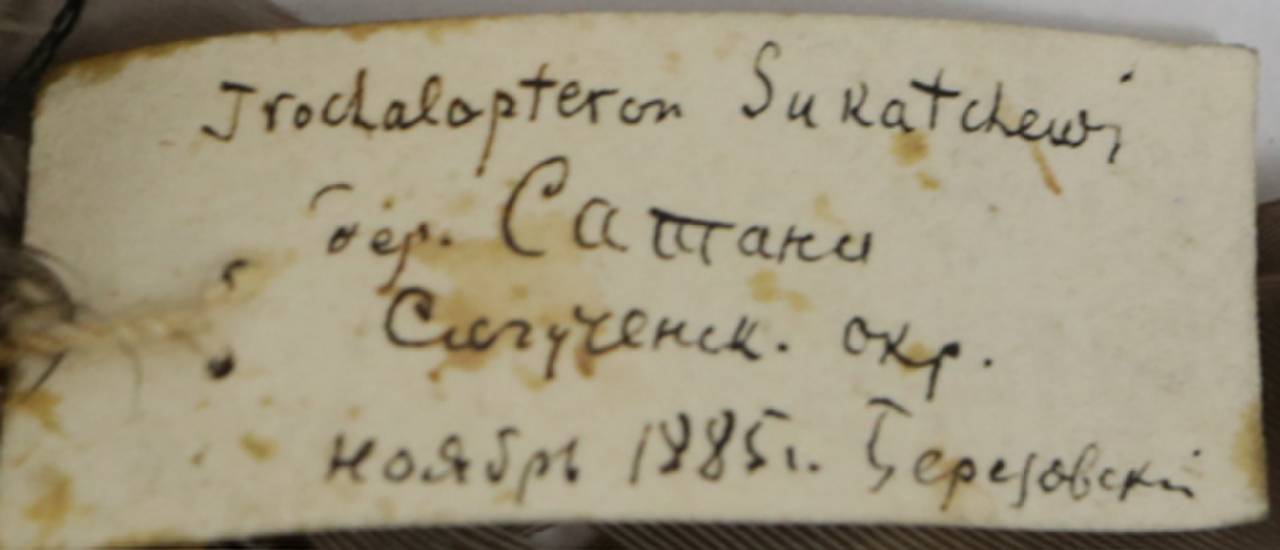 Trochalopteron Sukatchewi
дер. Сатани
Сигученск. окр.
ноябрь 1885г. Березовскій